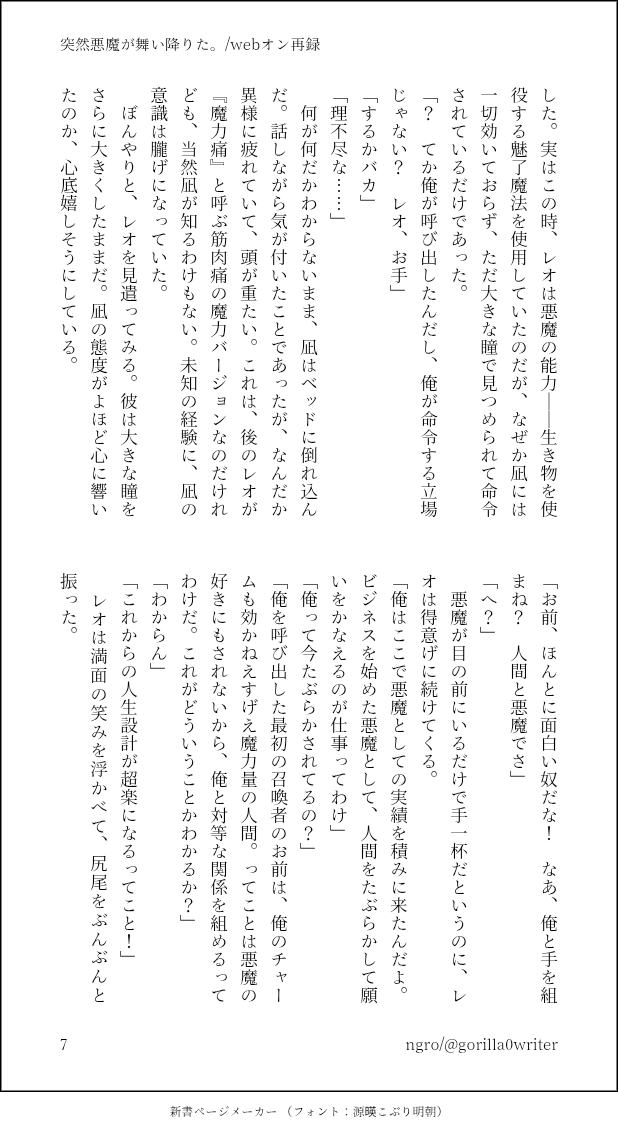 突然悪魔が舞い降りた。/webオン再録
した。実はこの時、レオは悪魔の能力――生き物を使
役する魅了魔法を使用していたのだが、なぜか凪には
一切効いておらず、ただ大きな瞳で見つめられて命令
されているだけであった。
「？　てか俺が呼び出したんだし、俺が命令する立場
じゃない？　レオ、お手」
「するかバカ」
「理不尽な……」
　何が何だかわからないまま、凪はベッドに倒れ込ん
だ。話しながら気が付いたことであったが、なんだか
異様に疲れていて、頭が重たい。これは、後のレオが
『魔力痛』と呼ぶ筋肉痛の魔力バージョンなのだけれ
ども、当然凪が知るわけもない。未知の経験に、凪の
意識は朧げになっていた。
　ぼんやりと、レオを見遣ってみる。彼は大きな瞳を
さらに大きくしたままだ。凪の態度がよほど心に響い
たのか、心底嬉しそうにしている。
「お前、ほんとに面白い奴だな！　なあ、俺と手を組
まね？　人間と悪魔でさ」
「へ？」
　悪魔が目の前にいるだけで手一杯だというのに、レ
オは得意げに続けてくる。
「俺はここで悪魔としての実績を積みに来たんだよ。
ビジネスを始めた悪魔として、人間をたぶらかして願
いをかなえるのが仕事ってわけ」
「俺って今たぶらかされてるの？」
「俺を呼び出した最初の召喚者のお前は、俺のチャー
ムも効かねえすげえ魔力量の人間。ってことは悪魔の
好きにもされないから、俺と対等な関係を組めるって
わけだ。これがどういうことかわかるか？」
「わからん」
「これからの人生設計が超楽になるってこと！」
　レオは満面の笑みを浮かべて、尻尾をぶんぶんと
振った。
7
ngro/@gorilla0writer
新書ページメーカー（フォント：源暎こぶり明朝）